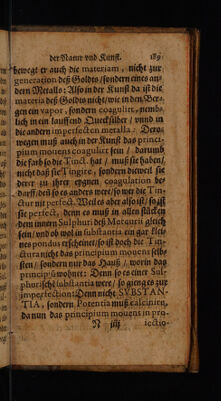 der Natur vnd Kunst. 189.
bewegt er auch die materiam, nicht zur
generation deß Goldts / sondern eines an-
dern Metalls: Also in der Kunst da ist die
materia deß Goldts nicht / wie in den Ber-
gen ein vapor, sondern coagulirt, nemb-
lich in ein lauffend Queckfilber / vnnd in
die andern imperfecten metalla: Dero-
wegen muß auch in der Kunst das princi-
pium mouens coagulirt sein / darumb
die farb so die Tinct. hat / muß sie haben /
nicht daß sie Tingire, sondern dieweil sie
derer zu jhrer eygnen coagulation be-
darff / denn so es anders were / so wer die Tin-
ctur nit perfect. Weil es aber also ist / so ist
sie perfect, denn es muß in allen stücken
dem innern Sulphuri deß Mercurii gleich
sein / vnd ob wol in substantia ein gar klei-
nes pondus erscheinet / so ist doch die Tin-
ctura nicht das principium mouens selb-
sten / sondern nur das Hauß / worin das
principium wohnet: Denn so es einer Sul-
phurischē substantia were / so gienge es zur
imperfection: Denn nicht SVBSTAN-
TIA, sondern Potentia muß calciniren,
da nun das principium mouens in pro-
N iiij iectio-